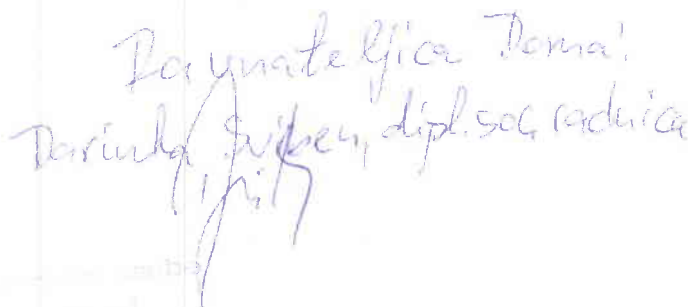 Ravnateljica Doma:
Darinka Sviben, dipl.soc.radnica